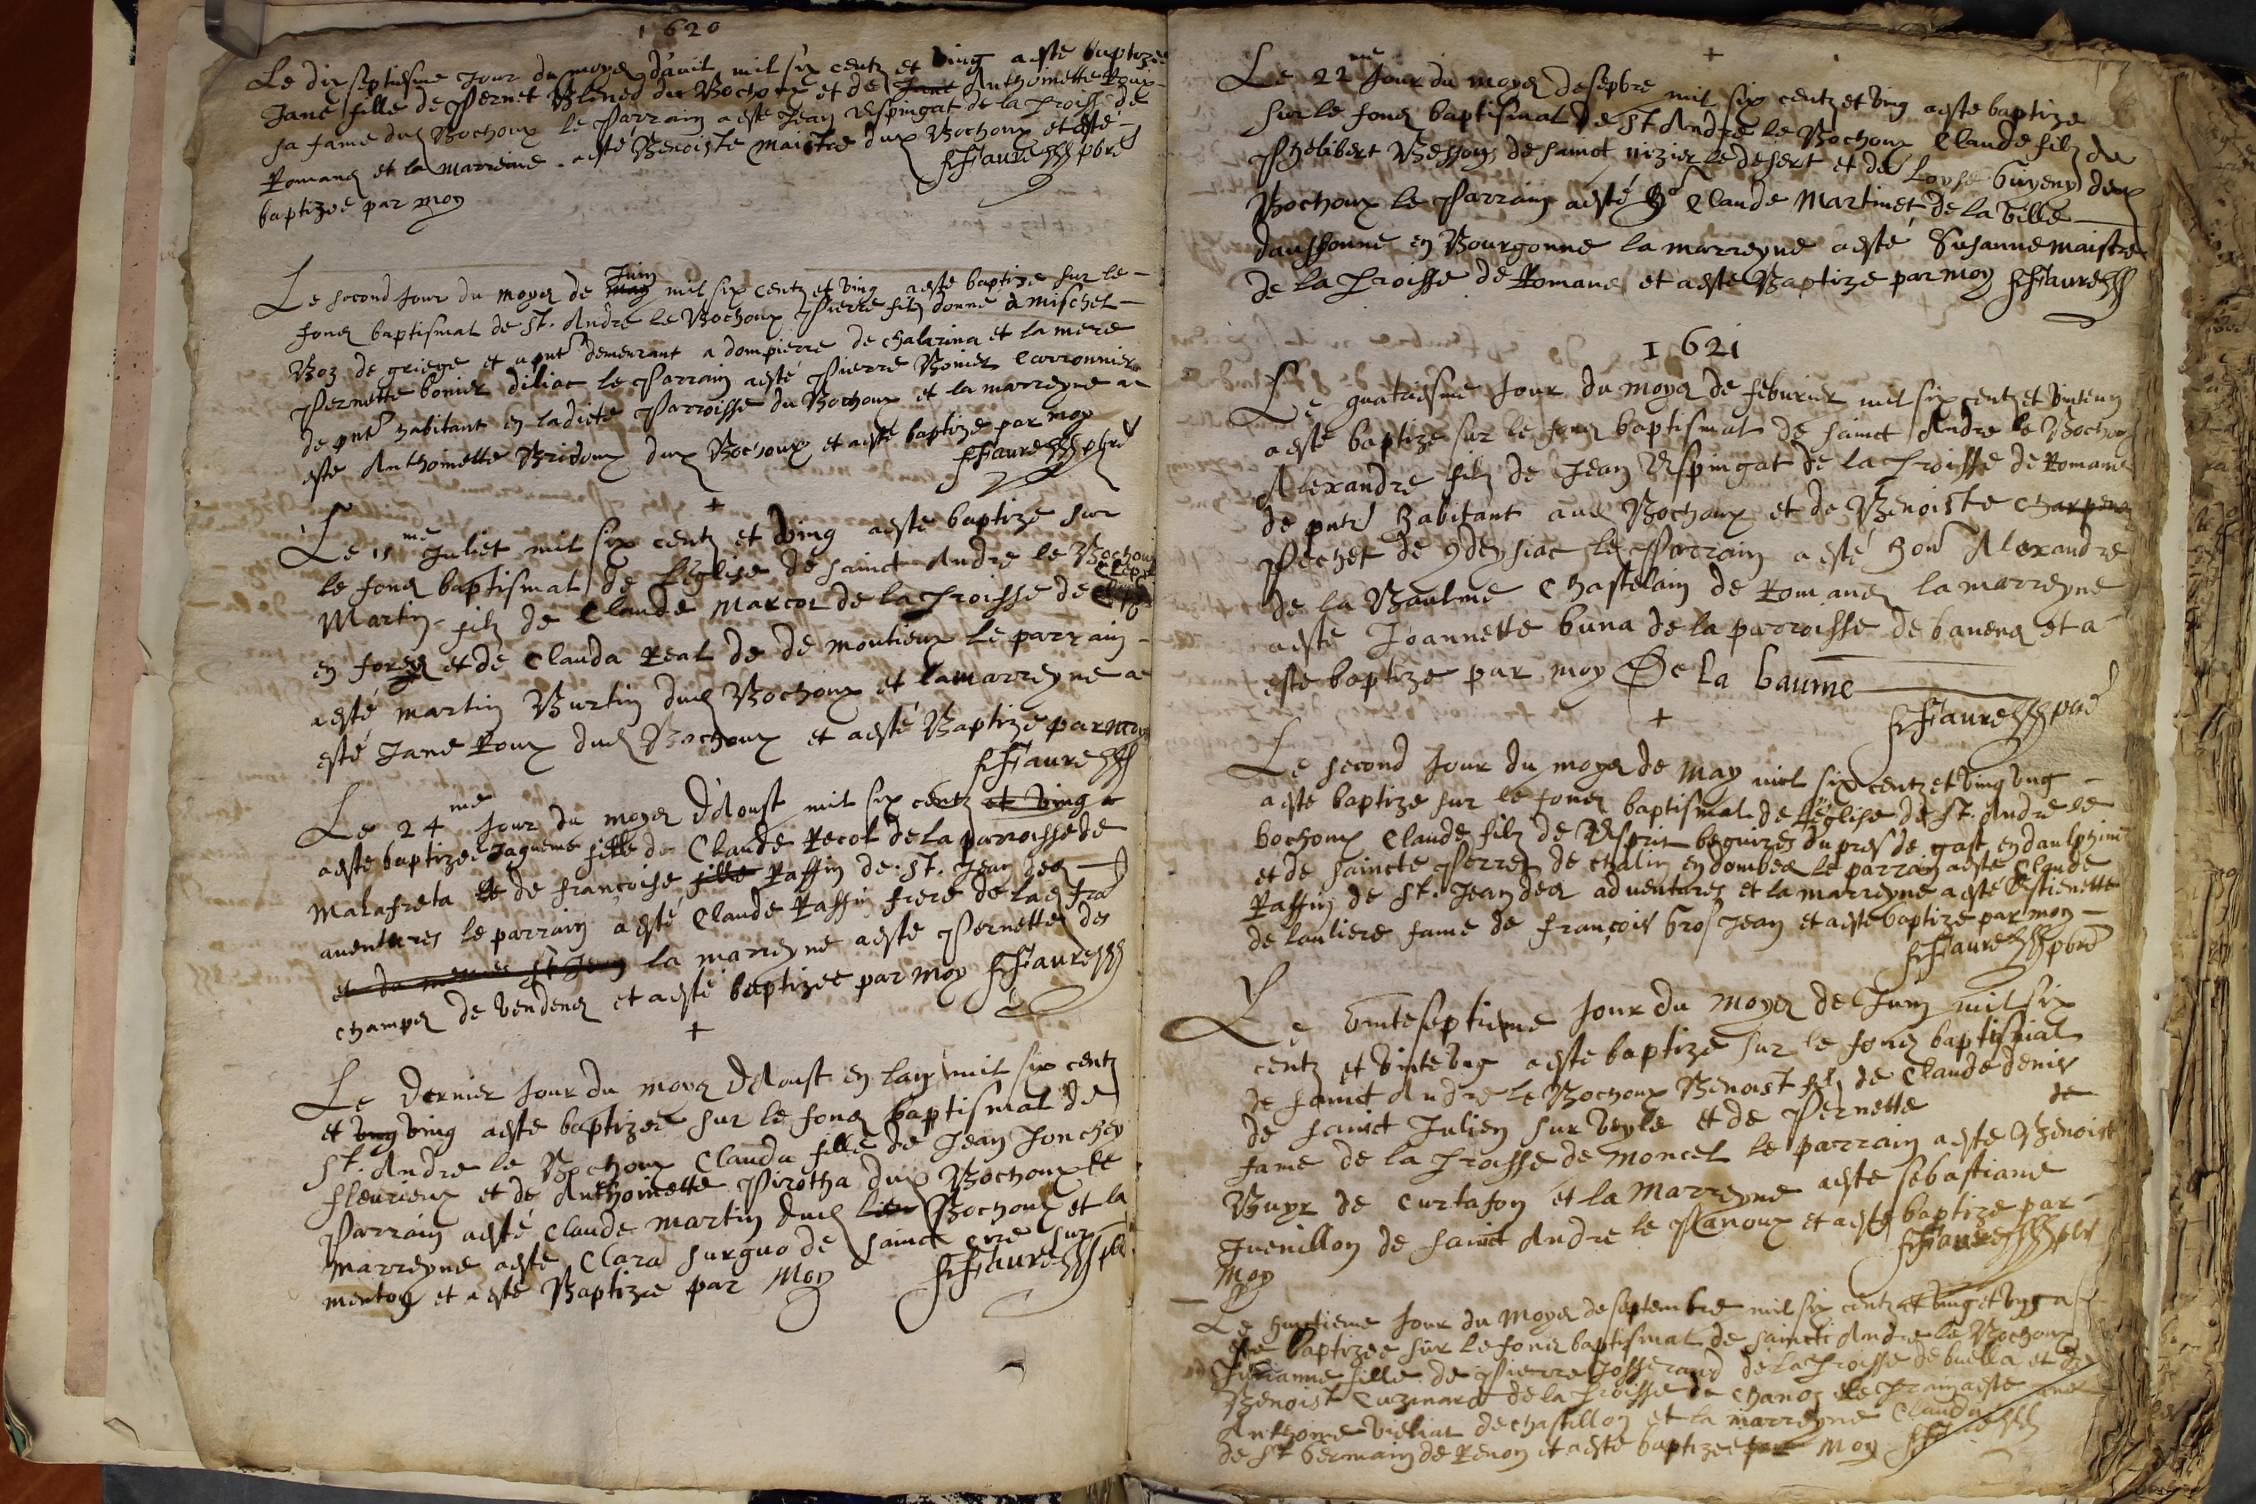 1620
Le dix septiesme Jour du moys d'avril mil six centz et ving a esté baptizee
Jane fille de Pernet Blenod du Bochoux et de Jane Anthoinette Roux
sa fame dud Bochoux le Parrain a esté Jean Espingat de la Proisse de
Romans et la marreine a esté Benoiste maistre dud Bochoux et a esté
baptizee par moy
Faure pbre
Le second Jour du moys de may Juin mil six centz et ving a esté baptize sur le
fons baptismal de St. Andre le Bochoux Pierre filz donne a mischel
Boz de griege et a pnt demeurant a dompierre de chalarina et la mere
Pernette bonier diliac le Parrain a esté Pierre Bonier Carronnier
de pnt habitant en ladicte Parroisse du Bochoux et la marreyne a
esté Anthoinette Bridoux dud Bochoux et a esté baptize par moy
Faure pbre
+
Le 15 me Juliet mil six centz et ving a esté baptize sur
le fons baptismal de l'eglise de sainct Andre le Bochoux
Martin filz de Claude Marcot de la Proisse de
en forez et de Clauda Real de de moutieux le parrain
a esté martin Burtin dud Bochoux et la marreyne a
esté Jane Roux dud Bochoux et a esté Baptize par moy
Faure
Le 24 me Jour du moys d'Aoust mil six centz et ving a
a esté baptizee Jaqueme fille de Claude Recot de la parroisse de
Malafreta et de françoise fille Raffin de St. Jean des
aventures le parrain a esté Claude Raffin frere de lad fra
et du mesme St Jean la marreyne a esté Pernette des
champs de Vendens et a esté baptizee par moy Faure
+
Le dernier Jour du moys d'Aoust en lan mil six centz
et ung ving a esté baptizee sur le fons baptismal de
St. Andre le Bochoux Clauda fille de Jean Jonchey
fleurieux et de Anthoinette Pirotha dud Bochoux le
Parrain a esté Claude martin dud lieu Bochoux et la
marreyne a esté Clara surguo de sainct cire sur
menton et a esté Baptizee par Moy Faure pb
+
Le 22 me Jour du moys de sepbre mil six centz et ving a esté baptize
sur le fons baptismal de St Andre le Bochoux Claude filz de
Phelibert Besson de sainct nizier le desert et de Loyse Guyeny dud
Bochoux le Parrain a esté Claude Martinet de la ville
daussonne en Bourgonne la marreyne a esté Susanne maistre
de la Proisse de Romans et a esté Baptize par moy Faure
1621
Le quatriesme Jour du moys de febvrier mil six centz et vinteun
a esté baptize sur le fons baptismal de sainct Andre le Bochoux
Alexandre filz de Jean Espingat de la Proisse de Romans
de pnt habitant aud Bochoux et de Benoiste
Pechet de le Parrain a esté hon Alexandre
de la Baulme Chastelain de Romans la marreyne
a esté Joannette buna de la parroisse de banens et a
esté baptize par moy De la baume
Faure pbre
+
Le second Jour du moys de may mil six centz et ving ung
a esté baptize sur le fons baptismal de l'eglise de St. Andre le
bochoux Claude filz de Esprit du pres de gast en daulphine
et de saincte Perret de chalin en dombes le parrain a esté Claude
Raffin de St. Jean des adventures et la marreyne a esté Estienette
de lauliere fame de françois Gros Jean et a esté baptize par moy
Faure pbre
Le vinteseptieme Jour du moys de Juin mil six
centz et vinteung a esté baptize sur le fons baptismal
de sainct Andre le Bochoux Benoist filz de Claude denis
de sainct Julien sur veyle et de Pernette de
fame de la Proisse de moncel le parrain a esté Benoist
Buyr de Curtafon et la Marreyne a esté sebastiane
Juenillon de sainct Andre le Panoux et a esté baptize par
Moy Faure pbre
Le huictieme Jour du Moys de septembre mil six centz et ving et ung a
esté baptizee sur le fons baptismal de sainct Andre le Bochoux
fille de Pierre Josserand de la Proisse de buella et de
Benoist Cuzinard de la Proisse de Chanoz le Prain a esté
Anthoine vieliat de chastillon et la marreyne Clauda
de St Germain de Renon et a esté baptizee par Moy